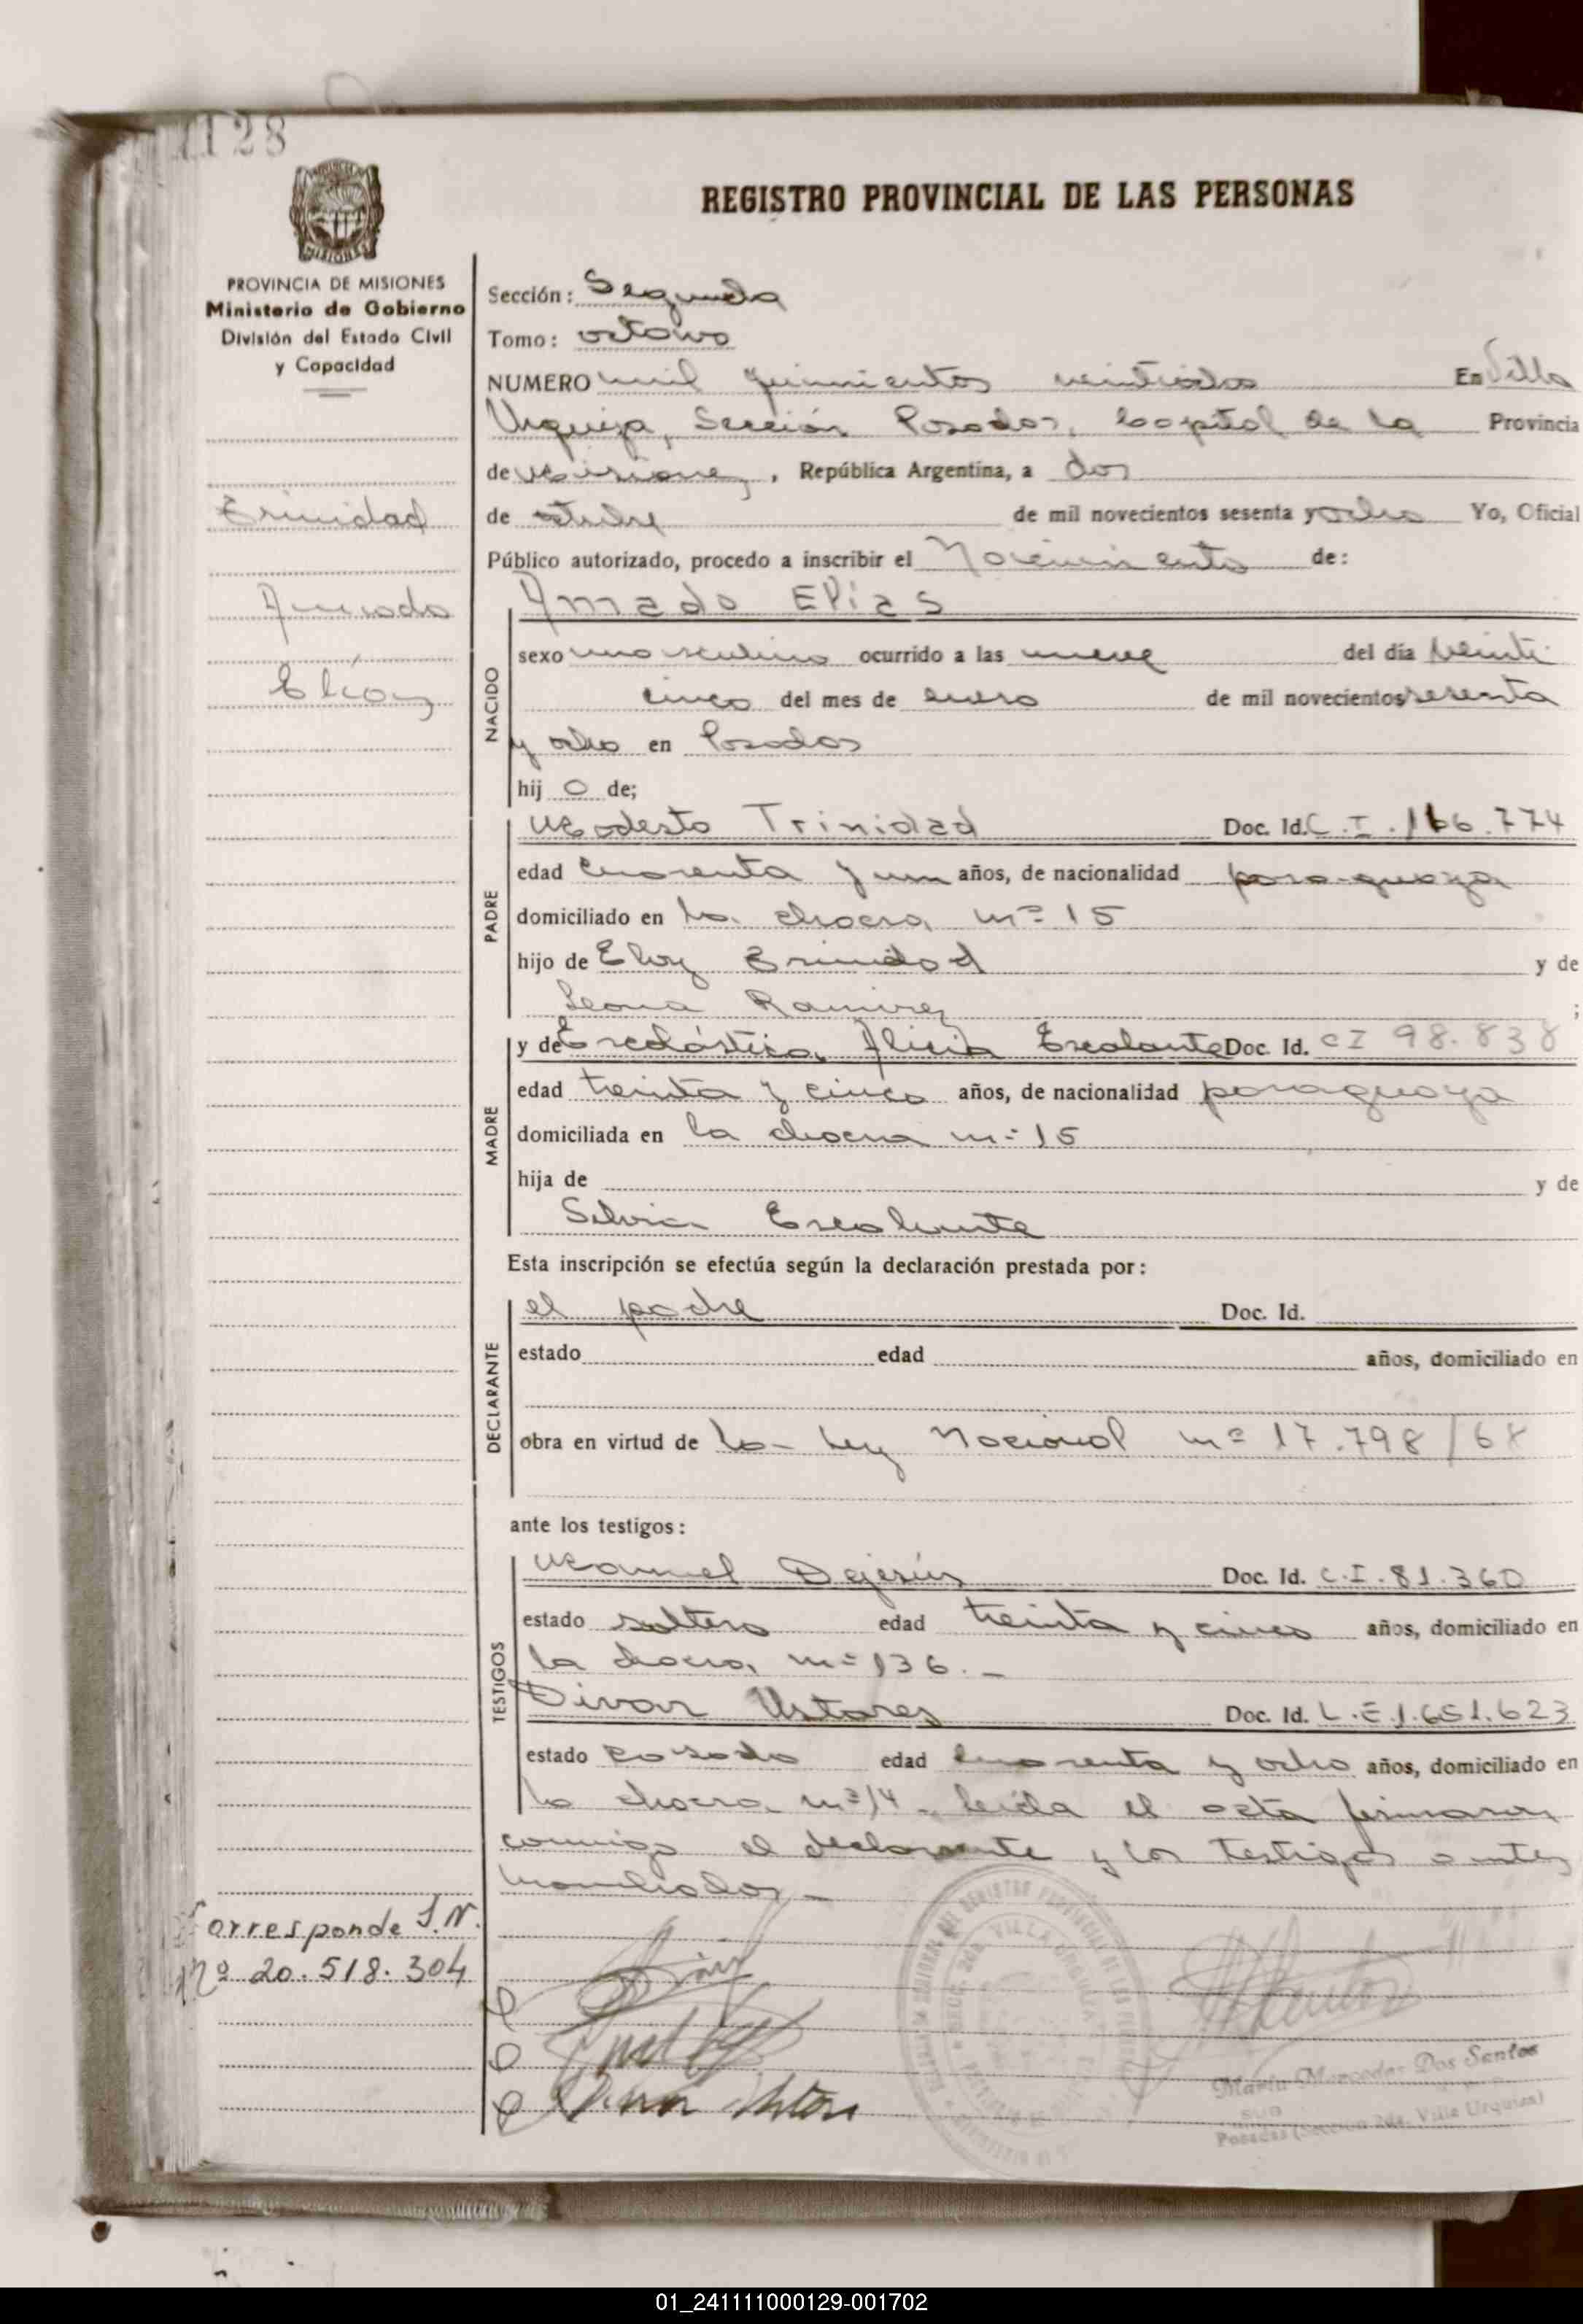 1128
REGISTRO PROVINCIAL DE LAS PERSONAS
PROVINCIA DE MISIONES
Ministerio de Gobierno
División del Estado Civil
y Capacidad
Sección: Segunda
Tomo: octavo
NUMERO mil quinientos veintidos En Villa
Urquiza, Sección Posadas, Capital de la Provincia
de Misiones, República Argentina, a dos
de octubre de mil novecientos sesenta y ocho Yo, Oficial
Público autorizado, procedo a inscribir el Nacimiento de:
Trinidad
Amado
Elías
NACIDO
Amado Elias
sexo masculino ocurrido a las nueve del día veinti
cinco del mes de enero de mil novecientos sesenta
y ocho en Posadas
hij o de;
PADRE
Modesto Trinidad Doc. Id. C.I. 166.774
edad cuarenta y un años, de nacionalidad paraguaya
domiciliado en la chacra nº 15
hijo de Eloy Trinidad y de
Leona Ramirez ;
MADRE
y de Escolástica Alicia Escalante Doc. Id. CI 98.838
edad treinta y cinco años, de nacionalidad paraguaya
domiciliada en la chacra nº 15
hija de y de
Silvia Escalante
Esta inscripción se efectúa según la declaración prestada por:
DECLARANTE
el padre Doc. Id.
estado edad años, domiciliado en
obra en virtud de la Ley Nacional nº 17.798/68
ante los testigos:
TESTIGOS
Manuel Dejesús Doc. Id. C.I. 81.360
estado soltero edad treinta y cinco años, domiciliado en
la chacra nº 136.-
Divar Ustares Doc. Id. L.E. 1.651.623
estado casado edad cuarenta y ocho años, domiciliado en
la chacra nº 14.- leída el acta firmaron
conmigo el declarante y los testigos antes
Corresponde I.N.
Nº 20.518.304
VILLA URQUIZA
María Mercedes Dos Santos
Posadas (Sección 2da. Villa Urquiza)
01_241111000129-001702